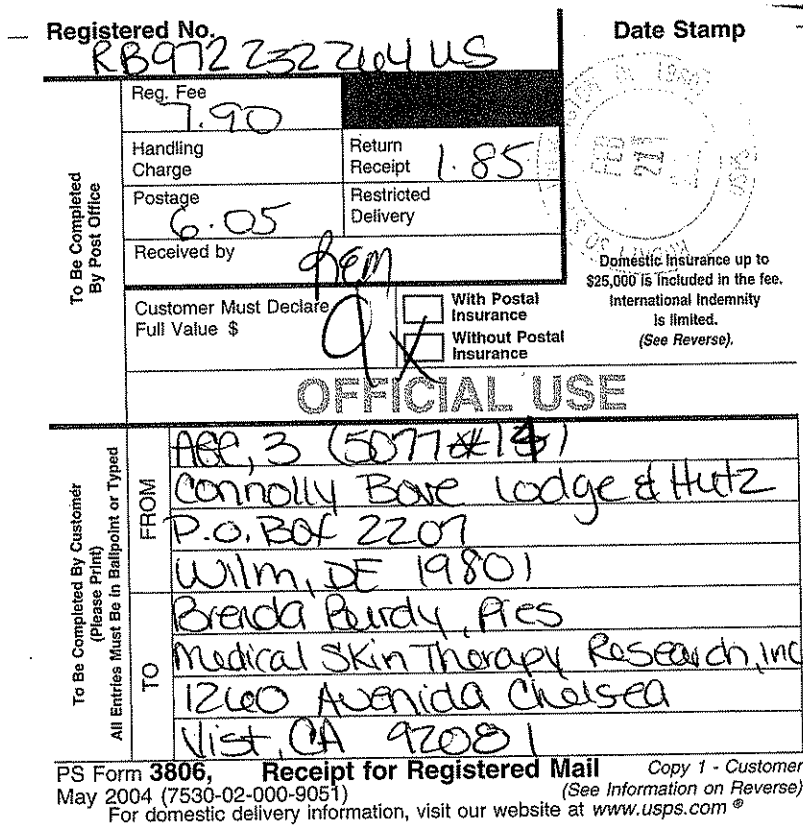 Registered No.
RB972 232 264 US
Date Stamp
To Be Completed
By Post Office
Reg. Fee
7.90
Handling
Charge
Return
Receipt 1.85
Postage
6.05
Restricted
Delivery
Received by
Customer Must Declare
Full Value $
With Postal
Insurance
Without Postal
Insurance
Domestic Insurance up to
$25,000 is included in the fee.
International Indemnity
is limited.
(See Reverse).
OFFICIAL USE
To Be Completed By Customer
(Please Print)
All Entries Must Be in Ballpoint or Typed
FROM
3 (5077
Connolly Bove Lodge & Hutz
P.O. Box 2207
Wilm, DE 19801
TO
Brenda Purdy, Pres
Medical Skin Therapy Research, Inc
1260 Avenida Chelsea
Vist, CA 92081
PS Form 3806, Receipt for Registered Mail Copy 1 - Customer
May 2004 (7530-02-000-9051) (See Information on Reverse)
For domestic delivery information, visit our website at www.usps.com ®